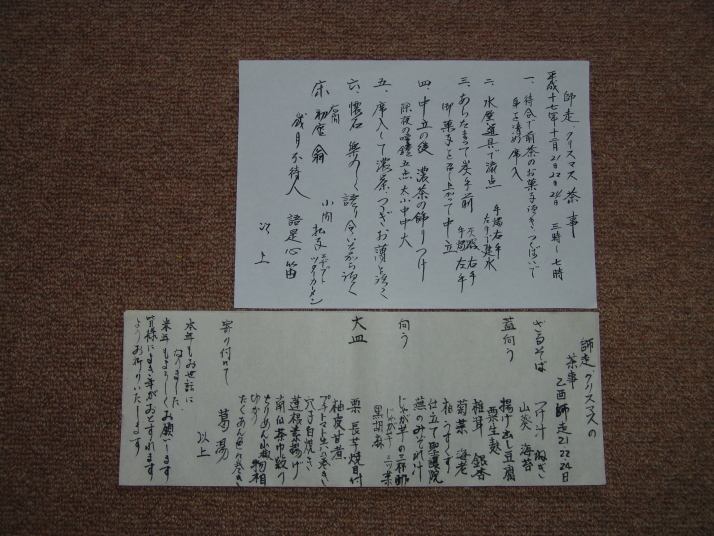 師走、クリスマス茶事
平成十七年十二月21日22日24日 三時〜七時
一、待合で前茶のお菓子頂き、つくばいで
手を清め席入
二、水屋道具で濃点
三、あらたまって炭手前
御菓子を召し上がって中立
四、中立の後 濃茶の飾りつけ
除夜の喚鐘五点 大小中中大
五、席入して濃茶、つづきお薄を頂く
六、懐石 楽しく語り合いながら頂く
床 初座 翁
歳月不待人 語是心笛
以上
師走クリスマスの
茶事 乙酉師走21 22 24日
ざるそば つけ汁 ねぎ
山葵 海苔
蓋向う 揚げ出し豆腐
粟生麩
椎茸 銀杏
菊菜 海老
柚 うすくず
仕立て 聖護院
蕪のみぞれ汁
向う じゃが芋の三杯酢
じゃが芋 三ツ葉
黒胡麻
大皿 栗 長芋焼目付
柚皮甘煮
穴子白焼き
蓮根素揚げ
南瓜茶巾絞り
ちりめん山椒物相
ゆかり
たくあん
寄り付にて 葛湯
以上
本年もお世話に
なりました
来年もよろしくお願いします
皆様によき年がおとずれます
ようお祈りいたします